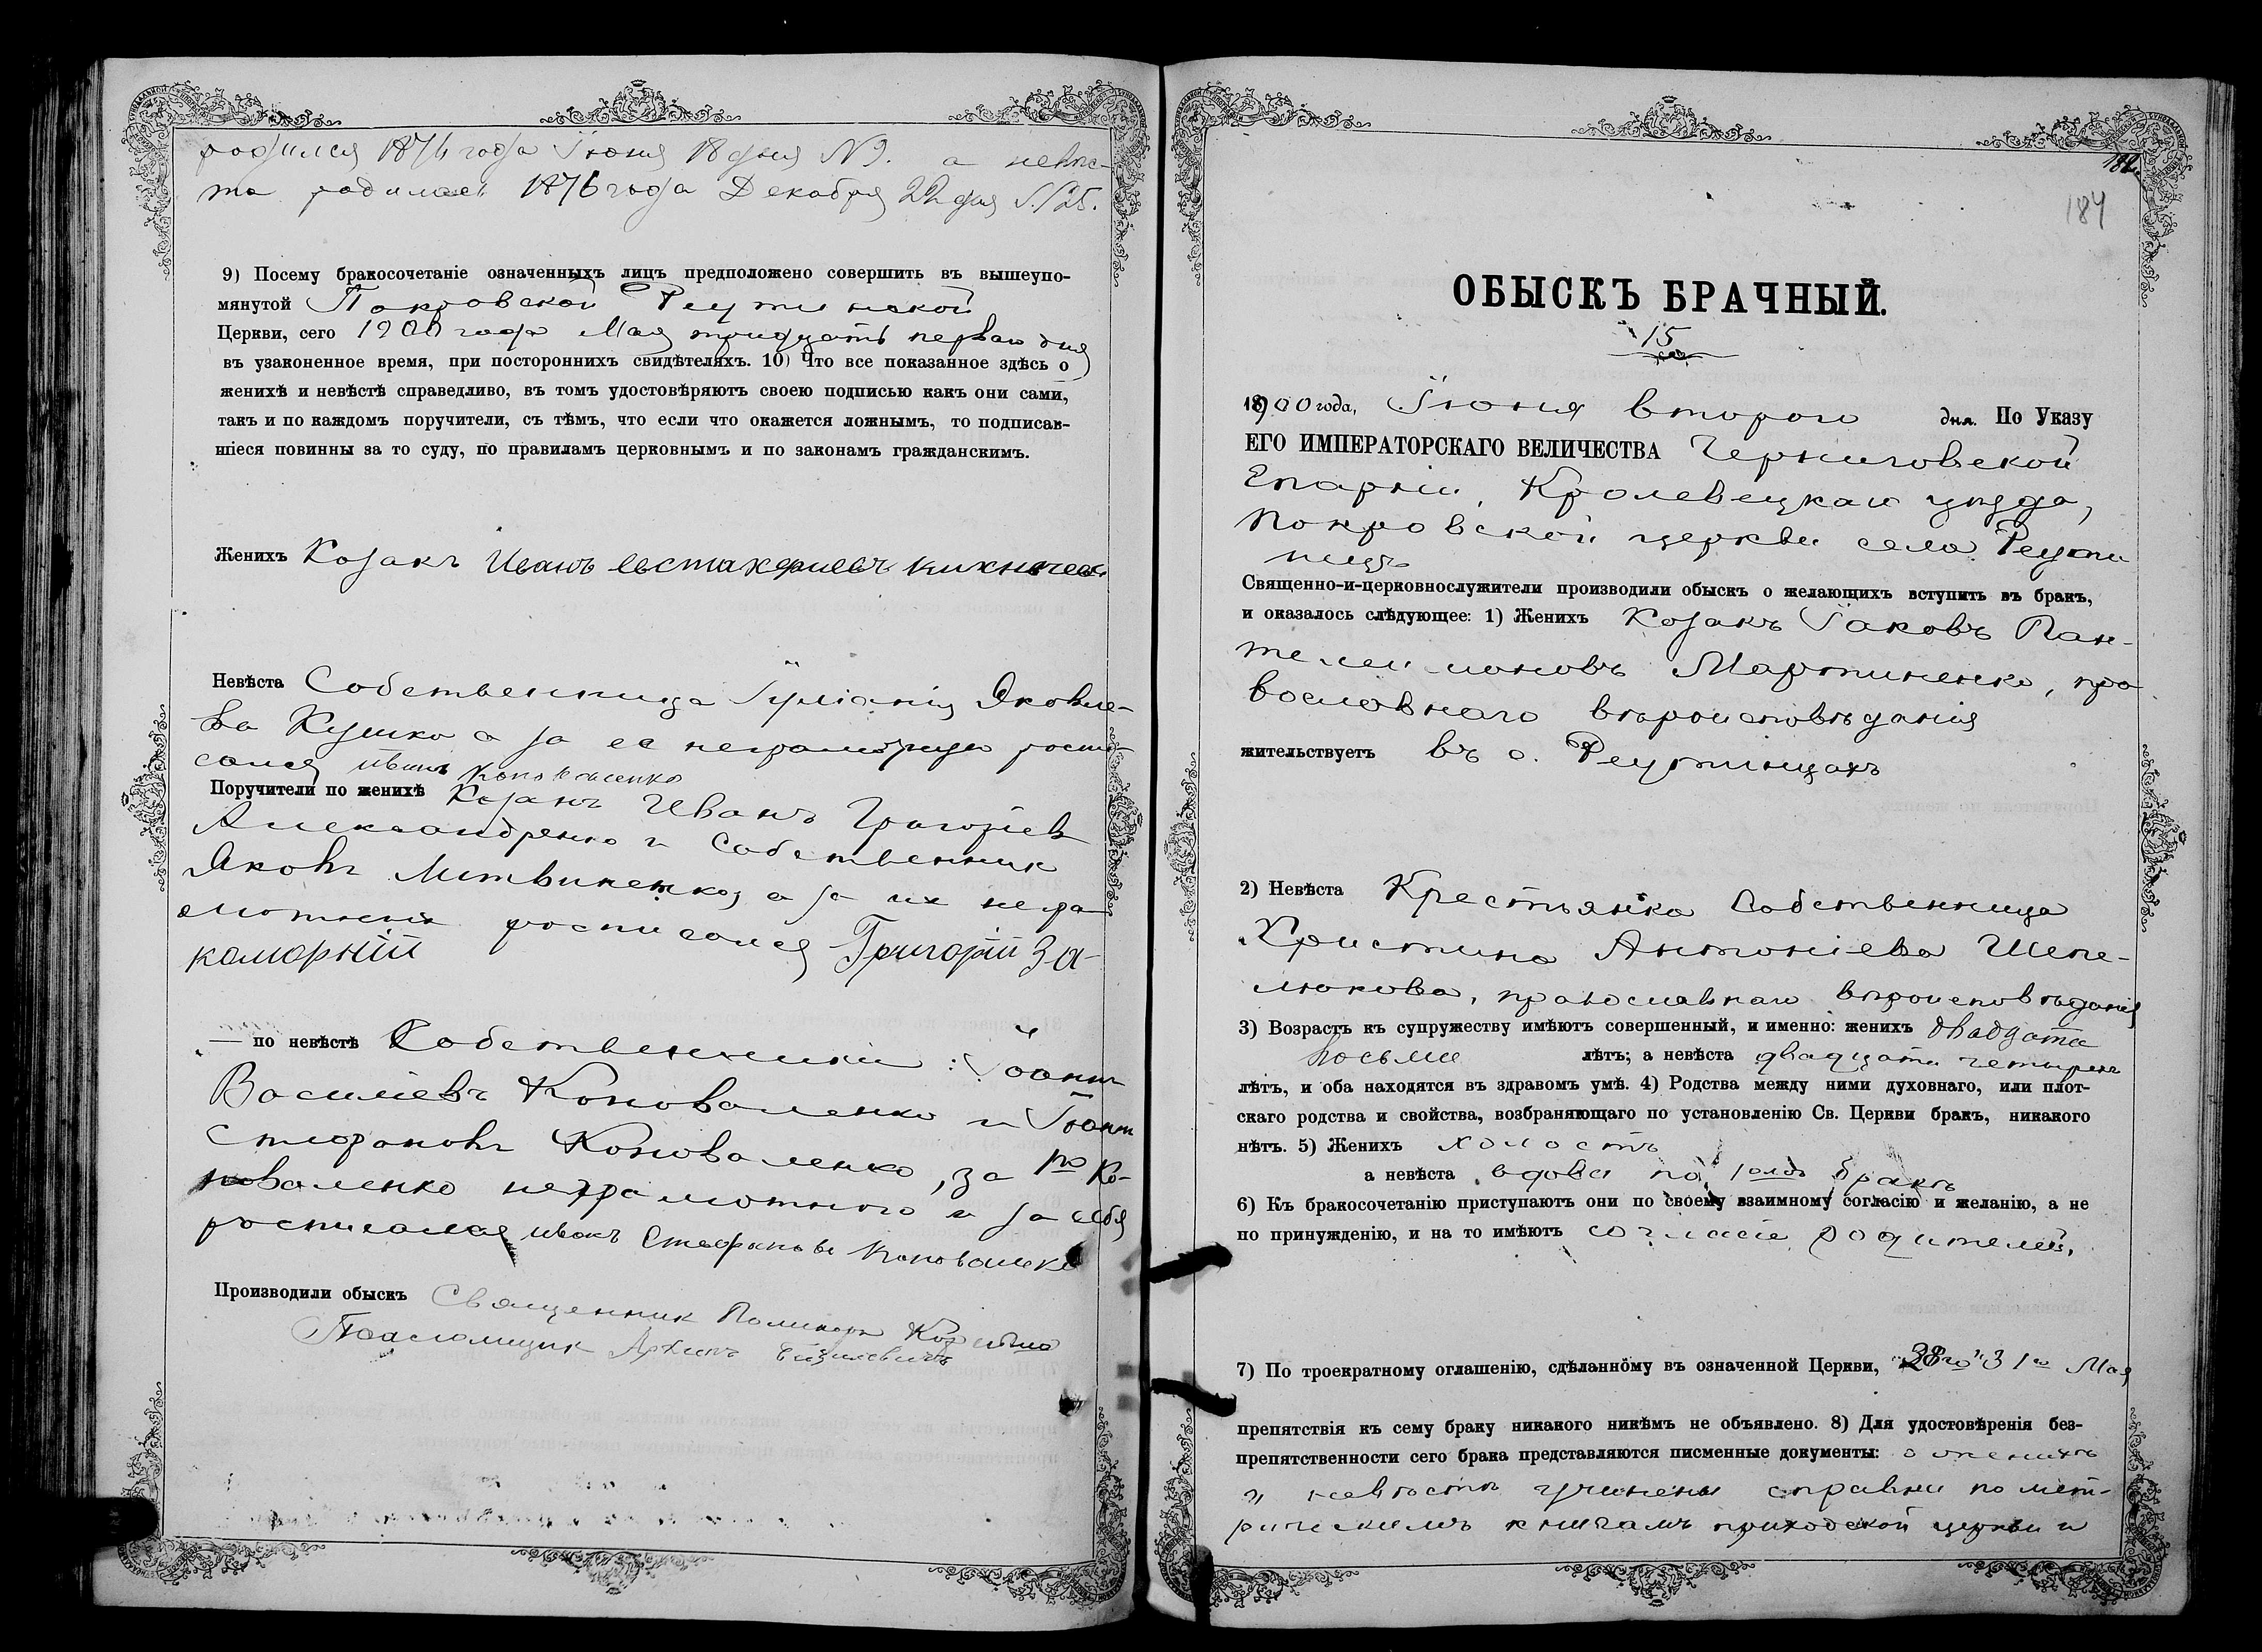 родился 1874 года Іюня 18 дня №9. а невѣс-
та родилась 1876 года Декабря 22 дня №25.
9) Посему бракосочетаніе означенныхъ лицъ предположено совершить въ вышеупо-
мянутой Покровской Реутинской
Церкви, сего 1900 года Мая тридцать перваго дня
въ узаконенное время, при постороннихъ свидѣтеляхъ. 10) Что все показанное здѣсь о
женихѣ и невѣстѣ справедливо, въ томъ удостовѣряютъ своею подписью какъ они сами,
такъ и по каждомъ поручители, съ тѣмъ, что если что окажется ложнымъ, то подписав-
шіеся повинны за то суду, по правиламъ церковнымъ и по законамъ гражданскимъ.
Женихъ Козакъ Иванъ Евстафіевъ
Невѣста Собственница Іуліанія Яковле-
ва Кушко а за ее неграмотную роспи-
сался Иванъ Коноваленко
Поручители по женихѣ Козакъ Иванъ Григоріев
Александренко и Собственник
Яковъ Литвиненко, а за их негра
мотных росписался Григорій За-
каморній
— по невѣстѣ Собственники: Іоанн
Василіевъ Коноваленко и Іоанн
Стефановъ Коноваленко, за 1го Ко-
новаленко неграмотного и за себя
росписался Иванъ Стефановъ Коноваленко
Производили обыскъ Священник
Псаломщик
184
184
ОБЫСКЪ БРАЧНЫЙ.
15
1900 года, Іюня второго дня. По Указу
ЕГО ИМПЕРАТОРСКАГО ВЕЛИЧЕСТВА Черниговской
Епархіи, Кролевецкаго уѣзда,
Покровской церкви села Реути
нецъ
Священно-и-церковнослужители производили обыскъ о желающихъ вступить въ бракъ,
и оказалось слѣдующее: 1) Женихъ Козакъ Іаковъ Пан-
телеимоновъ Мартиненко, пра
вославного вѣроисповѣданія
жительствуетъ въ с. Реутинцахъ
2) Невѣста Крестьянка Собственница
Христина Антоніева Шепе-
люкова, православнаго вѣроисповѣданія
3) Возрастъ къ супружеству имѣютъ совершенный, и именно: женихъ двадцати
восьми лѣтъ; а невѣста двадцати четырехъ
лѣтъ, и оба находятся въ здравомъ умѣ. 4) Родства между ними духовнаго, или плот-
скаго родства и свойства, возбраняющаго по установленію Св. Церкви бракъ, никакого
нѣтъ. 5) Женихъ холостъ
а невѣста вдова по 1омъ бракѣ
6) Къ бракосочетанію приступаютъ они по своему взаимному согласію и желанію, а не
по принужденію, и на то имѣютъ согласіе родителей.
7) По троекратному оглашенію, сдѣланному въ означенной Церкви, 28го 31го Мая
препятствія къ сему браку никакого никѣмъ не объявлено. 8) Для удостовѣренія без-
препятственности сего брака представляются писменные документы: о женихѣ
и невѣстѣ учинены справки по мет-
рическимъ книгамъ приходской церкви и